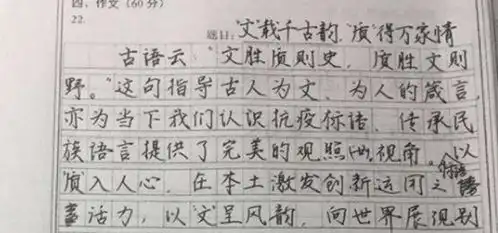 四、作文（60分）
22.
题目:"文"载千古韵,"质"得万家情
古语云,"文胜质则史,质胜文则
野。"这句指导古人为文、为人的箴言,
亦为当下我们认识抗疫标语、传承民
族语言提供了完美的观照 视角。以
"质"入人心,在本土激发创新运用之
活力,以"文"呈风韵,向世界展现别